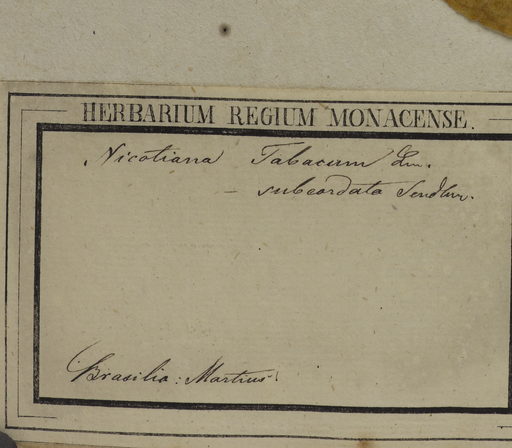 HERBARIUM REGIUM MONACENSE.
Nicotiana Tabacum Lin.
— subcordata Sendtner.
Brasilia: Martius